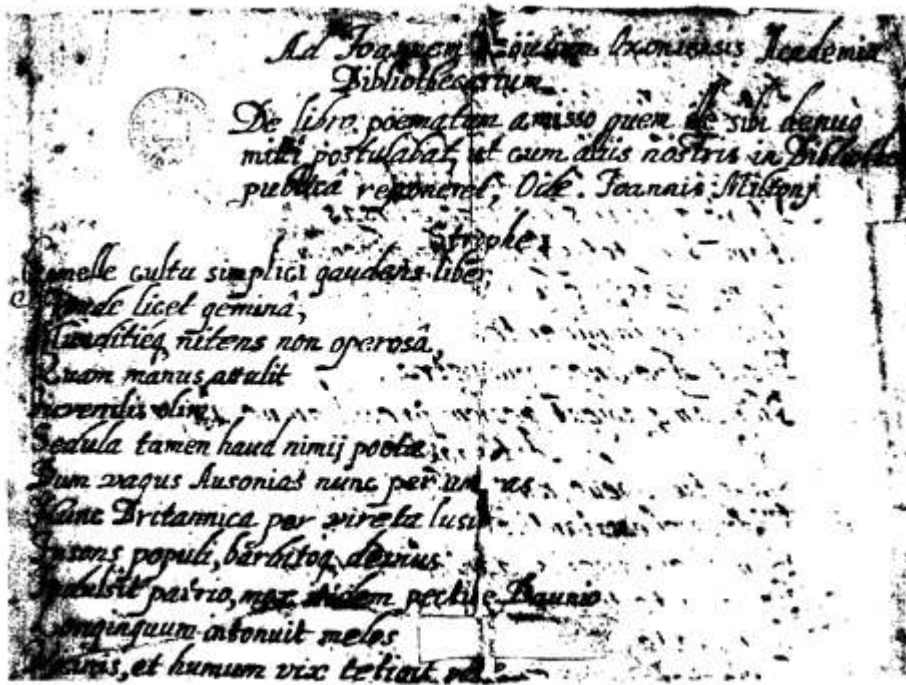 Ad Joannem Roüsium Oxoniensis Academiæ
Bibliothecarium
De libro poematum amisso quem ille sibi denuò
mitti postulabat, ut cum aliis nostris in
publicâ reponeret, Ode. Joannis Miltonj
Strophe 1
Gemelle cultu simplici gaudens liber
Fronde licet geminâ,
Munditieq nitens non operosâ,
Quam manus attulit
Juvenilis olim
Sedula tamen haud nimij poetæ;
Dum vagus Ausonias nunc per
Nunc Britannica per vireta lusit
Insons populi, barbitoq devius
Indulsit patrio, mox itidem pectine Daunio
Longinquum intonuit melos
Vicinis, et humum vix tetigit